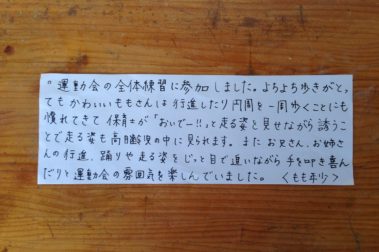 "運動会の全体練習に参加しました。よちよち歩きがとっ
てもかわいいももさんは行進したり円周を一周歩くことにも
慣れてきて保育士が「おいでー!!」と走る姿を見せながら誘うこ
とで走る姿も高月齢児の中に見られます。またお兄さん、お姉さ
んの行進、踊りや走る姿をじっと目で追いながら手を叩き喜ん
だりと運動会の雰囲気を楽しんでいました。